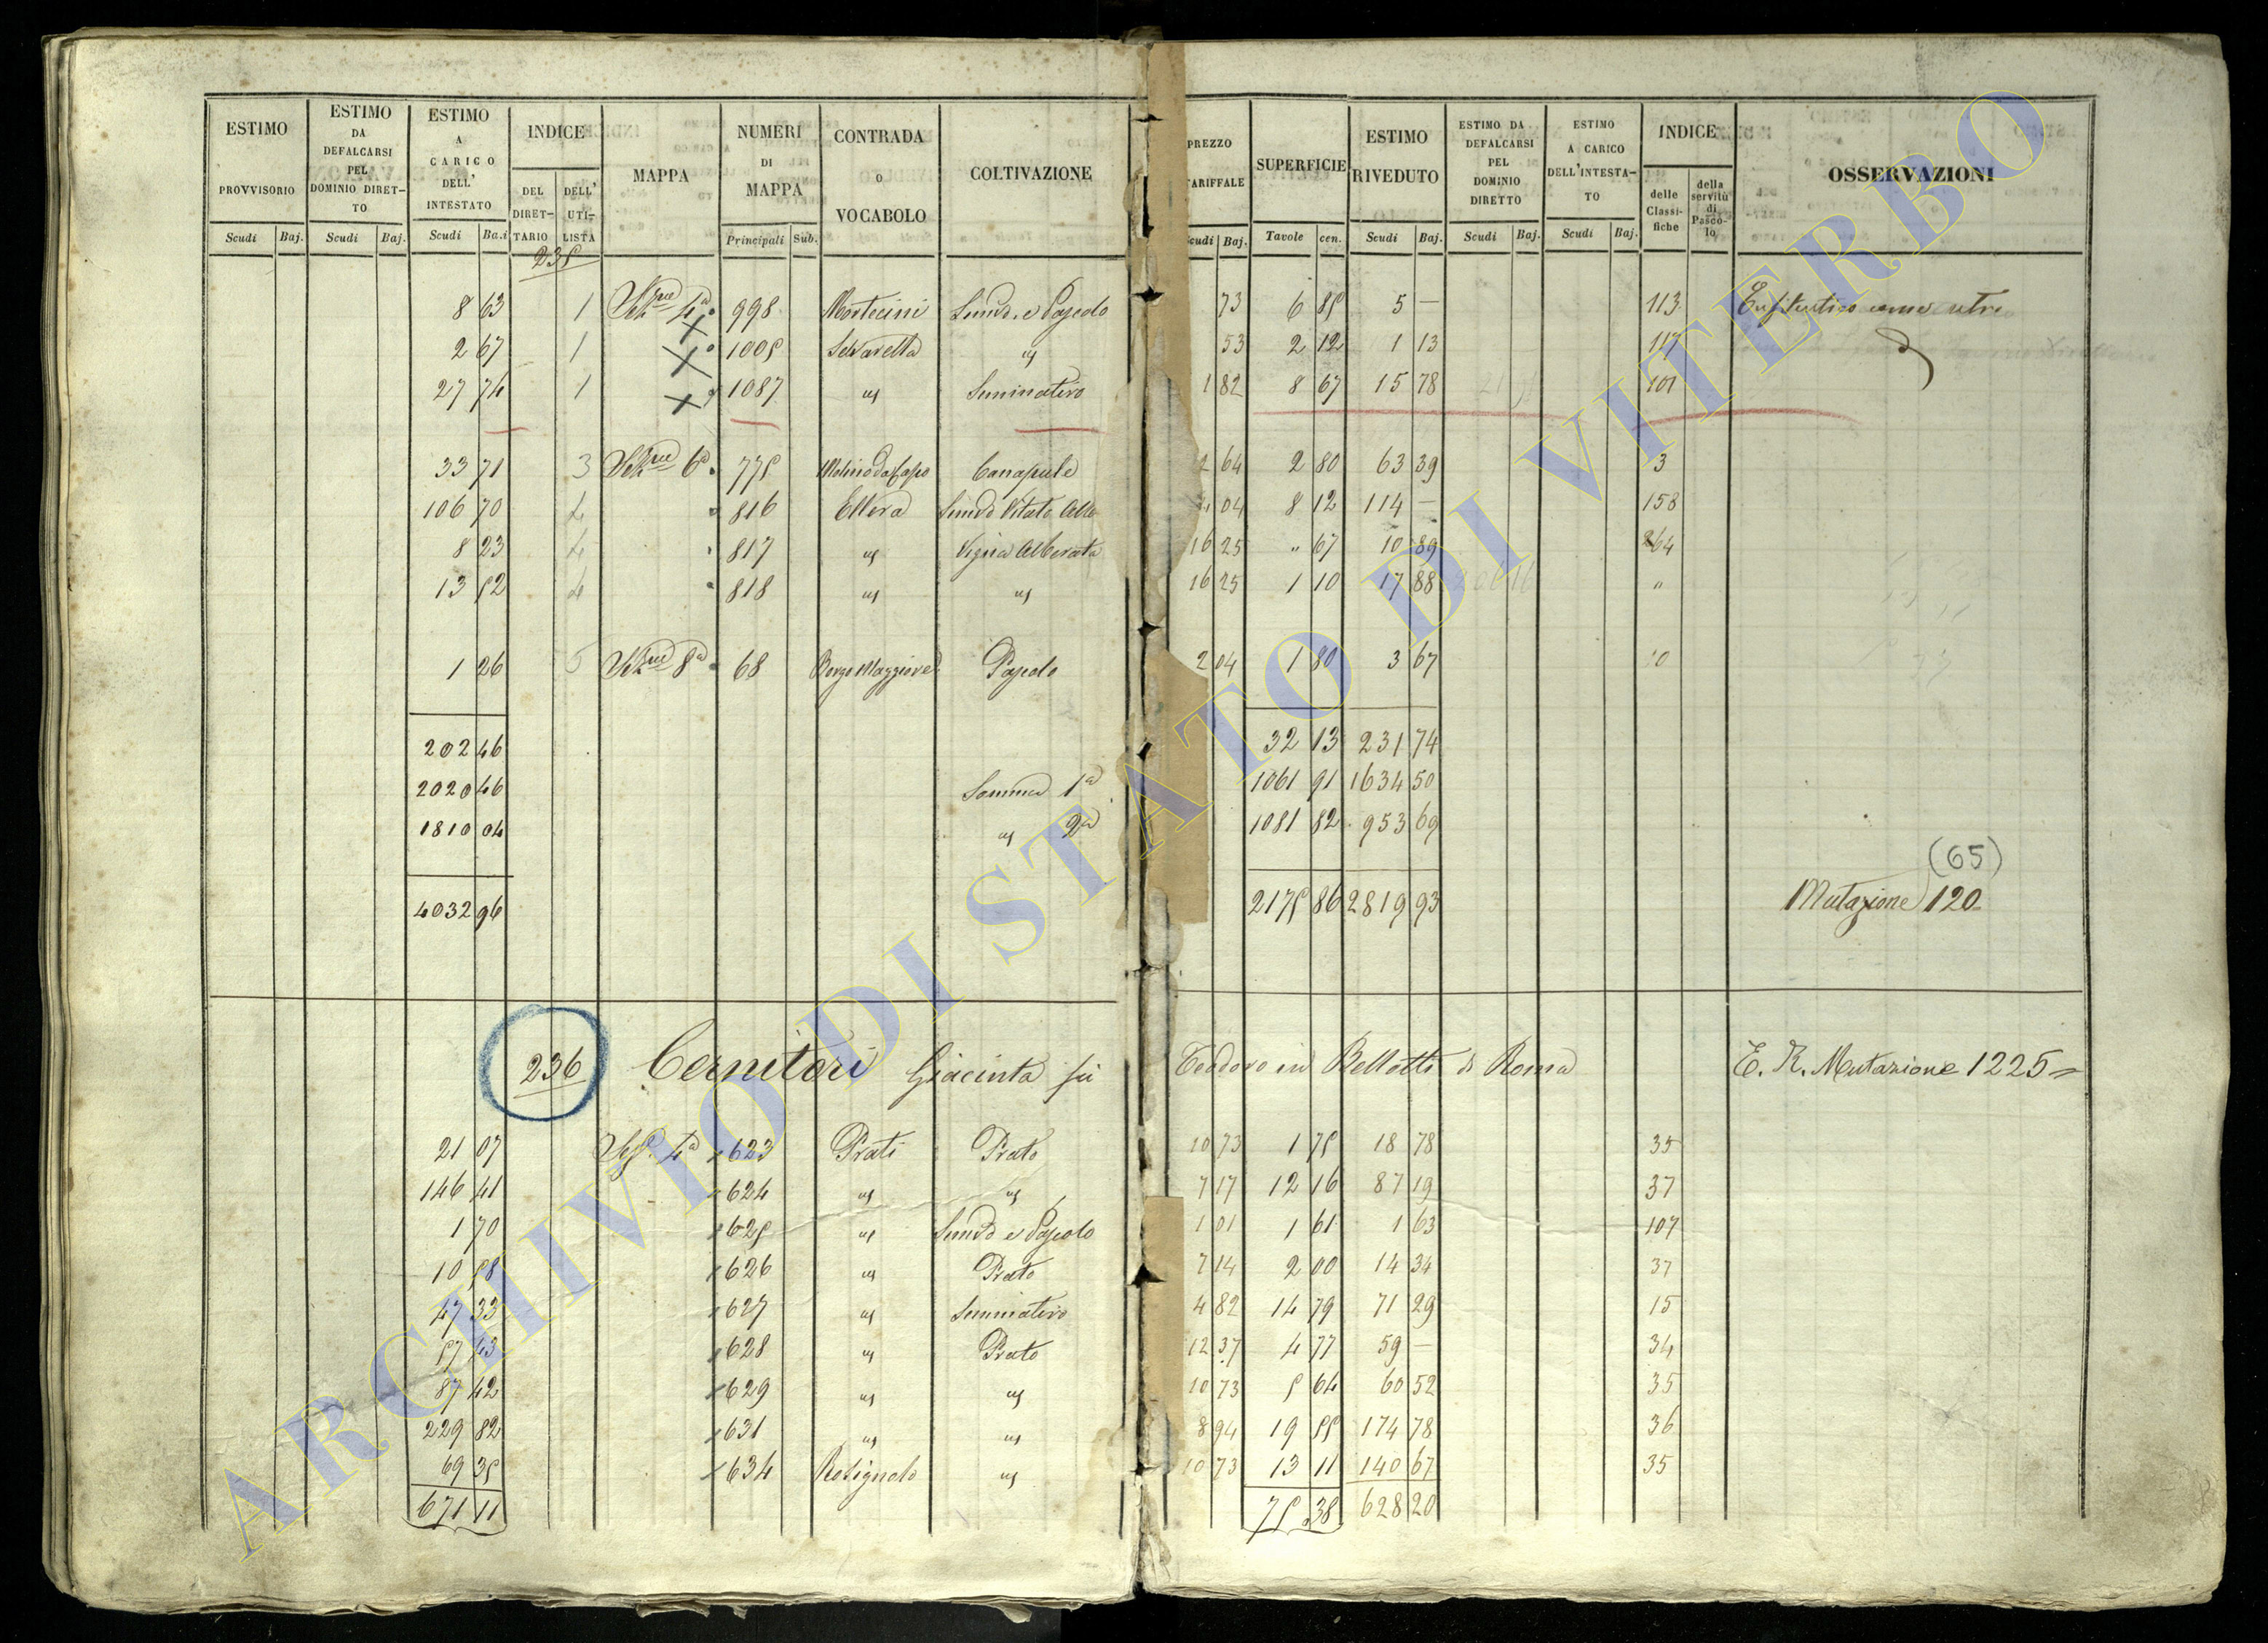 ESTIMO PROVVISORIO | ESTIMO DA DEFALCARSI PEL DOMINIO DIRETTO | ESTIMO A CARICO DELL' INTESTATO | INDICE | MAPPA | NUMERI DI MAPPA | CONTRADA O VOCABOLO | COLTIVAZIONE | PREZZO TARIFFALE | SUPERFICIE | ESTIMO RIVEDUTO | ESTIMO DA DEFALCARSI PEL DOMINIO DIRETTO | ESTIMO A CARICO DELL'INTESTATO | INDICE | OSSERVAZIONI
DEL DIRETTARIO | DELL' UTILISTA | delle Classifiche | della servitù di Pascolo
Scudi Baj. | Scudi Baj. | Scudi Ba.i | Principali Sub. | Scudi Baj. | Tavole cen. | Scudi Baj. | Scudi Baj. | Scudi Baj.
235
8 63 | 1 | Sezne 4a | 998 | Mortecini | Semvo e Pascolo | 73 | 6 85 | 5 — | 113 | Enfiteutico come retro
2 67 | 1 | 1005 | Selvarella | " | 53 | 2 12 | 1 13 | 117
27 74 | 1 | 1087 | " | Seminativo | 1 82 | 8 67 | 15 78 | 101
33 71 | 3 | Sezne 6a | 775 | Molino da Capo | Canapule | 2 64 | 2 80 | 63 39 | 3
106 70 | 4 | 816 | Ellera | Semvo Vitato Albo | 04 | 8 12 | 114 — | 158
8 23 | 4 | 817 | " | Vigna Alberata | 16 25 | " 67 | 10 89 | 264
13 52 | 4 | 818 | " | " | 16 25 | 1 10 | 17 88 | "
1 26 | 5 | Sezne 8a | 68 | Borgo Maggiore | Pascolo | 2 04 | 1 80 | 3 67
202 46 | 32 13 | 231 74
2020 46 | Somma 1a | 1061 91 | 1634 50
1810 04 | " 2a | 1081 82 | 953 69
(65)
4032 96 | 2175 86 | 2819 93 | Mutazione 120
236 Cernitori Giacinta fu Teodoro in Bellotti di Roma | E. R. Mutazione 1225=
21 07 | Sez. 4a | 623 | Prati | Prato | 10 73 | 1 75 | 18 78 | 35
146 41 | 624 | " | " | 7 17 | 12 16 | 87 19 | 37
1 70 | 625 | " | Semvo e Pascolo | 1 01 | 1 61 | 1 63 | 107
10 58 | 626 | " | Prato | 7 14 | 2 00 | 14 34 | 37
47 33 | 627 | " | Seminativo | 4 82 | 14 79 | 71 29 | 15
57 43 | 628 | " | Prato | 12 37 | 4 77 | 59 — | 34
87 42 | 629 | " | " | 10 73 | 5 64 | 60 52 | 35
229 82 | 631 | " | " | 8 94 | 19 55 | 174 78 | 36
69 35 | 634 | Rosignolo | " | 10 73 | 13 11 | 140 67 | 35
671 11 | 75 38 | 628 20
ARCHIVIO DI STATO DI VITERBO